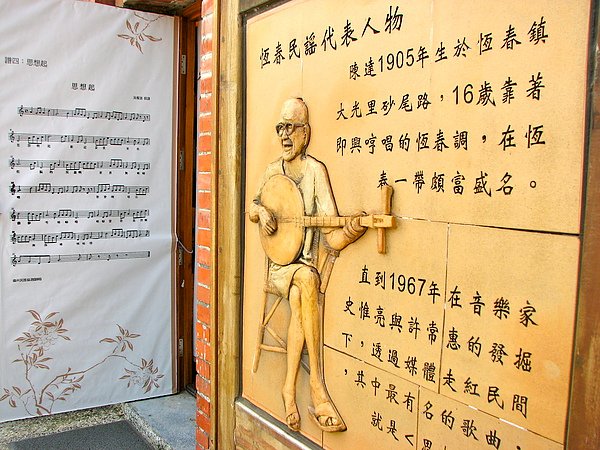 譜四：思想起
思想起
恆春民謠代表人物
陳達1905年生於恆春鎮
大光里砂尾路，16歲靠著
即興哼唱的恆春調，在恆
春一帶頗富盛名。
直到1967年在音樂家
史惟亮與許常惠的發掘
下，透過媒體走紅民間
，其中最有名的歌曲，
就是<思